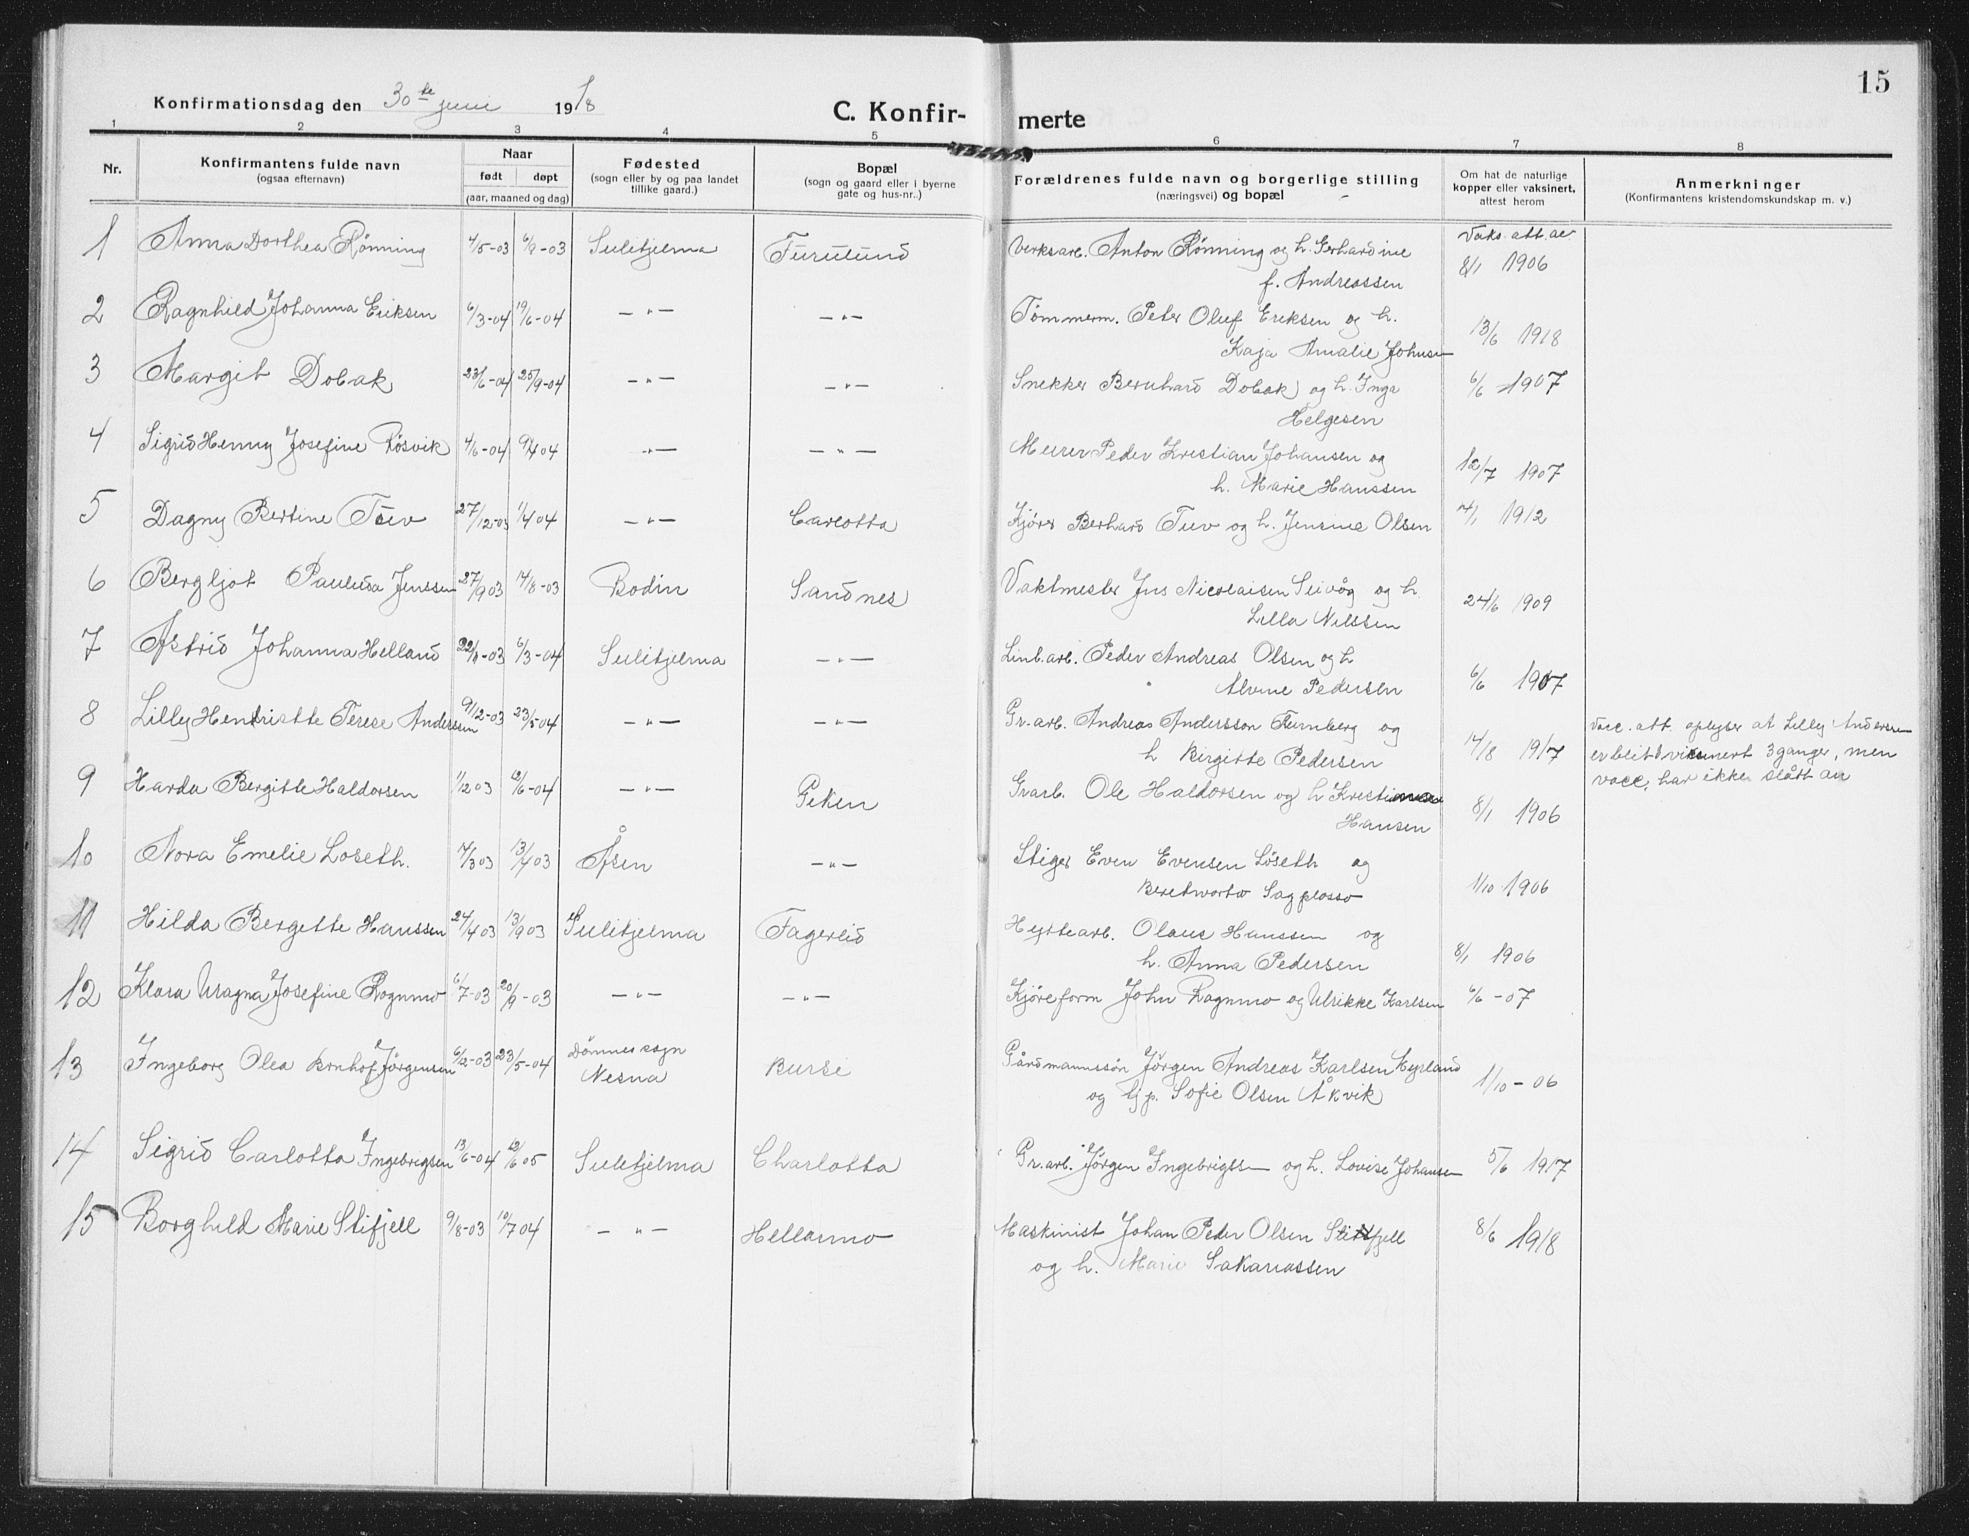 15
Konfirmationsdag den 30te juni 1918
C. Konfir- merte
1 2 3 4 5 6 7 8
Nr. Konfirmantens fulde navn (ogsaa efternavn) Naar født døpt (aar, maaned og dag) Fødested (sogn eller by og paa landet tillike gaard.) Bopæl (sogn og gaard eller i byerne gate og hus-nr..) Forældrenes fulde navn og borgerlige stilling (næringsvei) og bopæl Om hat de naturlige kopper eller vaksinert, attest herom Anmerkninger (Konfirmantens kristendomskundskap m. v.)
1 Anna Dorthea Rönning 4/5-03 6/9-03 Sulitjelma Furulund Verksarb. Anton Rönning og h. Gerhardine Vaks. att. av
f. Andreassen 8/1 1906
2 Ragnhild Johanna Eriksen 6/3-04 19/6-04 -"- -"- Tömmerm. Peter Oluf Eriksen og h.
Kaja Amalie Johnsen 13/6 1918
3 Margit Dobak 23/6-04 25/9-04 -"- -"- Snekker Bernhard Dobak og h. Inga 6/6 1907
Helgesen
4 Sigrid Henny Josefine Røsvik 4/6-04 9/4 04 -"- -"- Murer Peder Kristian Johansen og
h. Marie Hanssen 12/7 1907
5 Dagny Bertine Tuv 27/12-03 1/4 04 -"- Carlotta Kjører Berhard Tuv og h. Jensine Olsen 4/1 1912
6 Bergljot Paulina Jenssen 27/9 03 14/8-03 Bodin Sandnes Vaktmester Jns Nicolaisen Seivåg og h.
Lilla Nilssen 24/6 1909
7 Astrid Johanna Helland 22/11-03 6/3-04 Sulitjelma -"- Linb.arb. Peder Andreas Olsen og h
Alvine Pedersen 6/6 1907
8 Lilly Henriette Terese Andersen 9/12-03 23/5 04 -"- -"- Gr.arb. Andreas Andersson Furnberg og
h Birgitte Pedersen 14/8 1917
Vacc. att. oplyser at Lilly Andersen
er blit vacsinert 3 ganger, men
vacc. har ikke slått an
9 Harda Bergitte Haldorsen 1/12 03 6/6-04 -"- Peken Grarb. Ole Haldorsen og h Kristianna
Hansen 8/1 1906
10 Nora Emelie Loseth. 7/3 03 13/4 03 Åsen -"- Stiger Even Evensen Löseth og
Sagplosso 1/10 1906
11 Hilda Bergette Hanssen 24/4 03 13/9 03 Sulitjelma Fagerlid Hyttearb. Olaus Hanssen og
h. Anna Pedersen 8/1 1906
12 Klara Magna Josefine Rognmo 6/7-03 20/9-03 -"- -"- Kjøreform John Rognmo og Ulrikke Karlsen 6/6-07
13 Ingeborg Olea Jörgensen 6/2-03 23/5-04 Dönnes sogn
Nesna Bursi Gårdmannssön Jörgen Andreas Karlsen Hyrland
og Sofie Olsen Åkvik 1/10-06
14 Sigrid Carlotta Ingebrigsen 13/6-04 12/6 05 Sulitjelma Charlotta Gr.arb. Jörgen Ingebrigtsen og h. Lovise Johansen 5/6 1917
15 Borghild Marie Stifjell 9/8-03 10/7 04 -"- Hellarmo Maskinist Johan Peder Olsen Stifjell 8/6 1918
og h. Marie Sakariassen